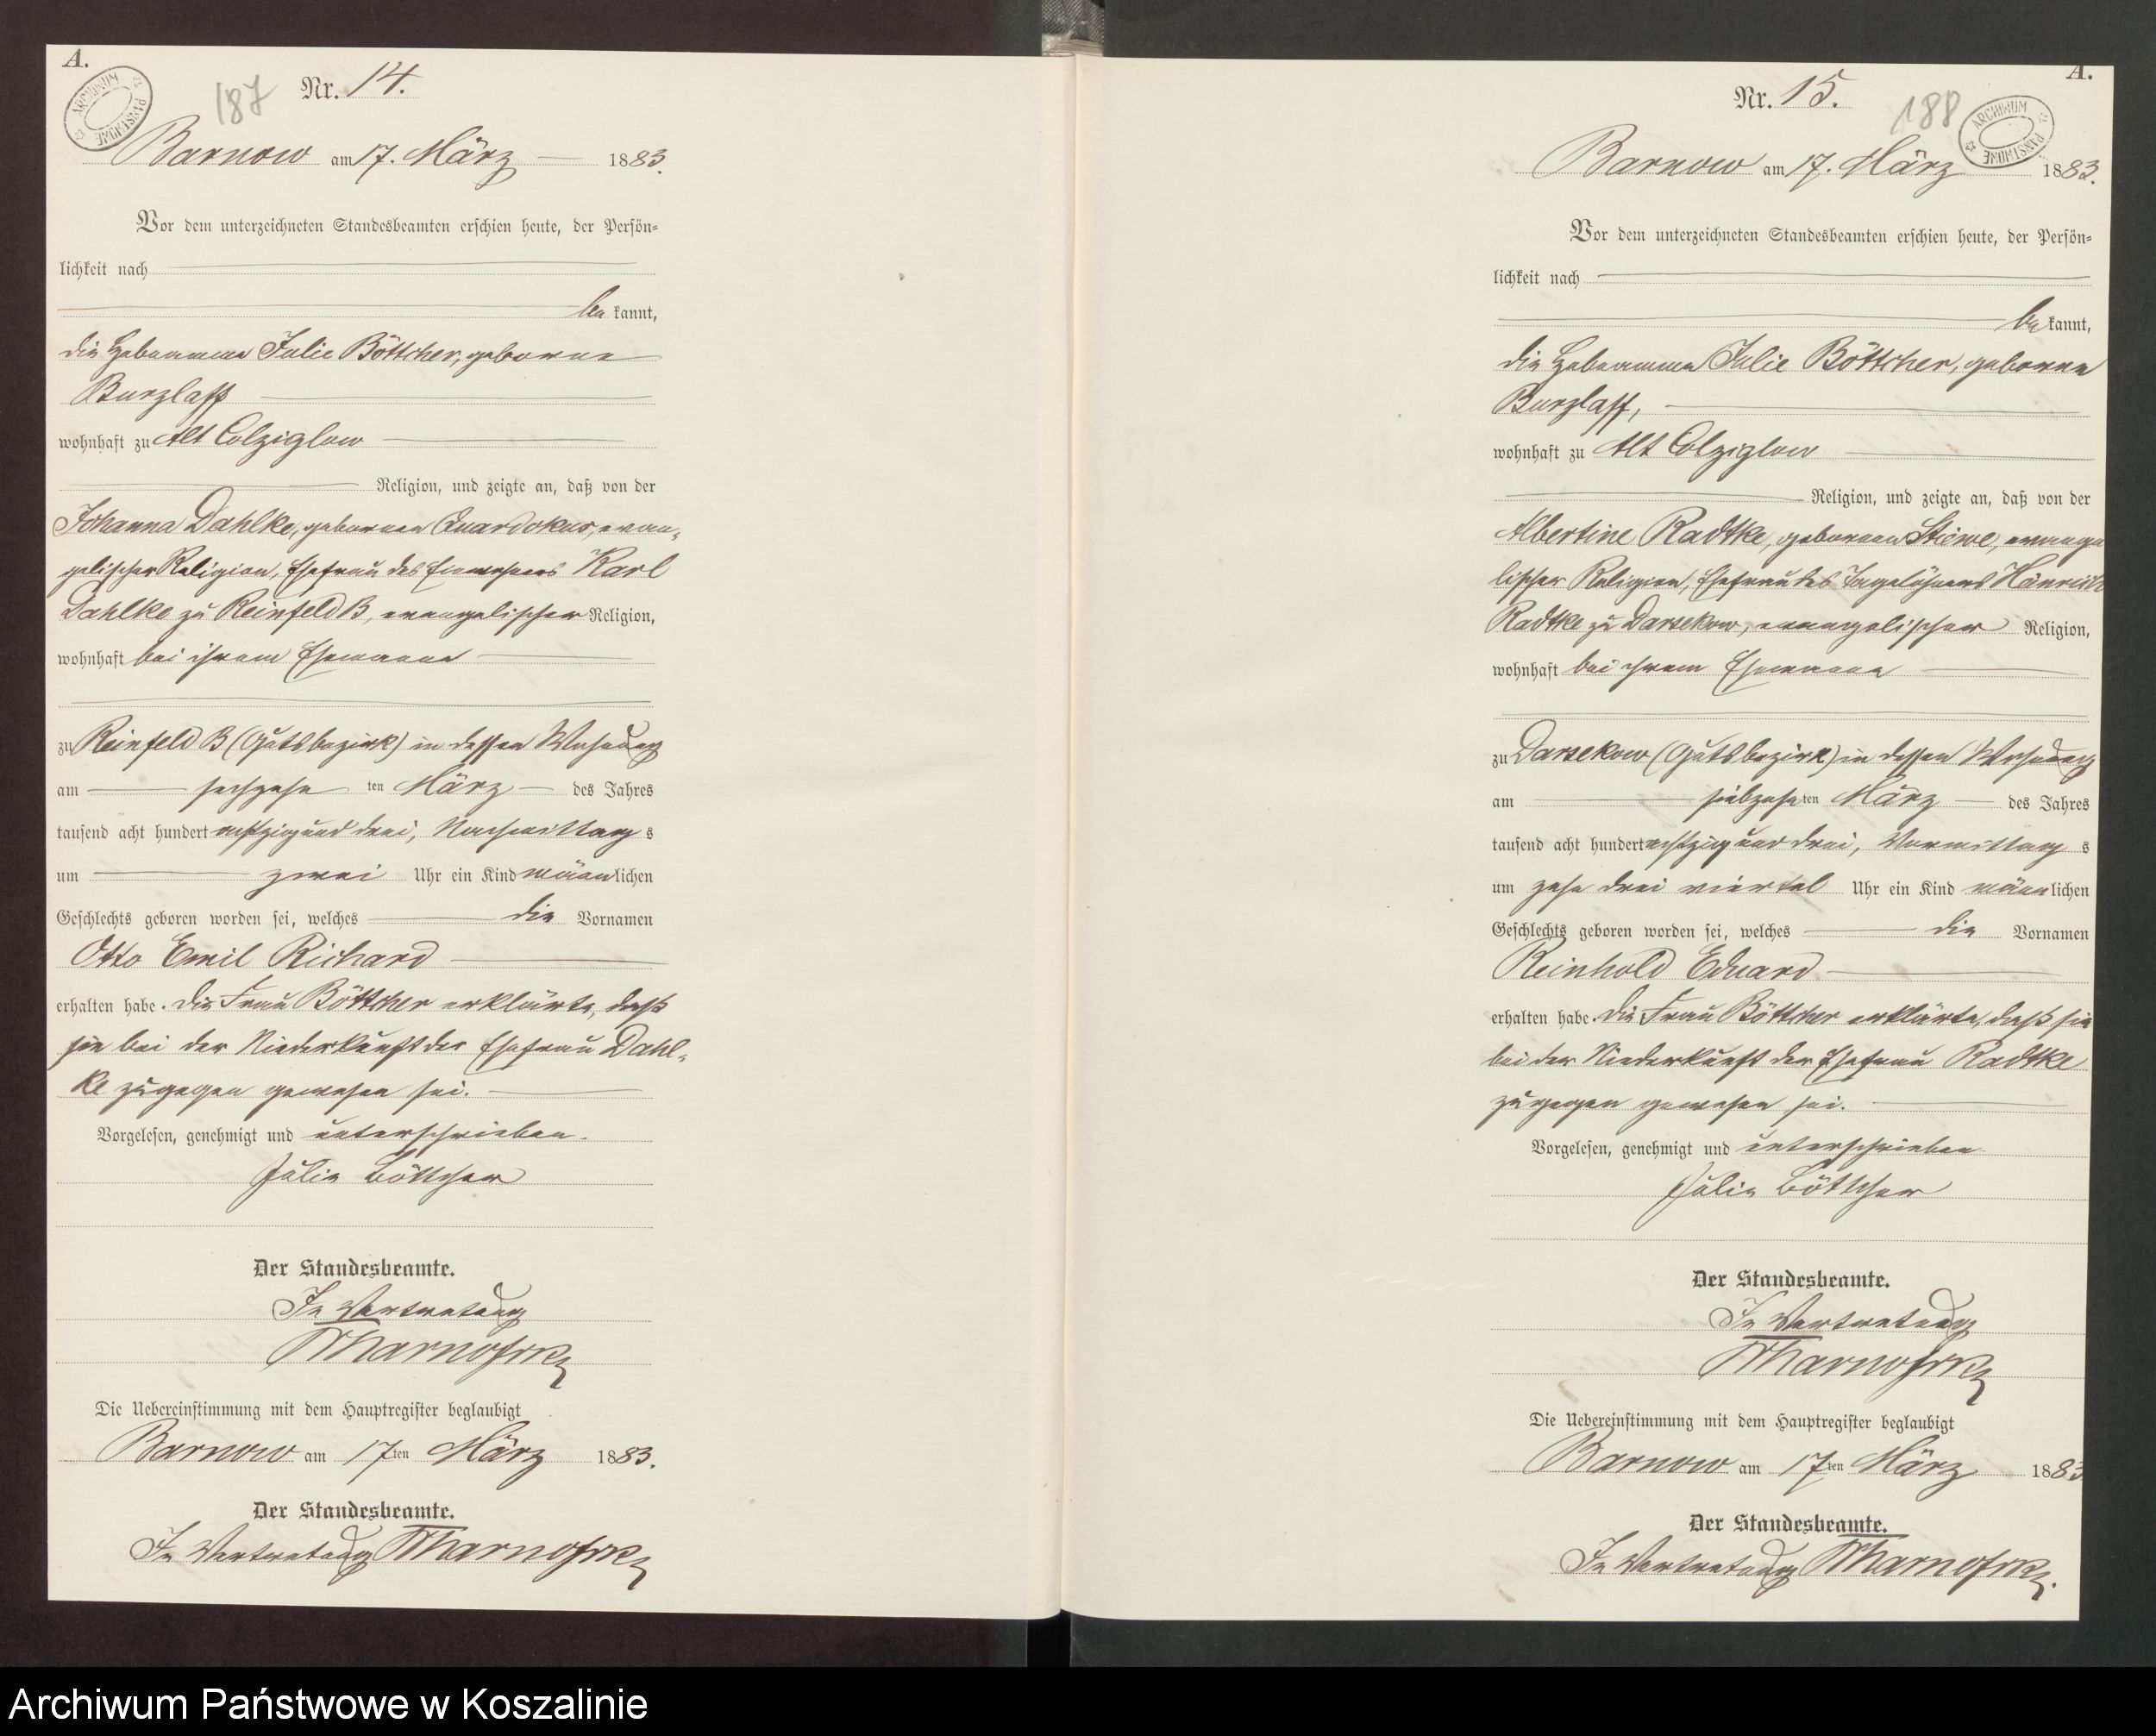 A.
ARCHIWUM PAŃSTWOWE
187
Nr. 14.
Barnow am 17. März 1883.
Vor dem unterzeichneten Standesbeamten erschien heute, der Persön=
lichkeit nach
be kannt,
die Hebamme Julie Böttcher, geborne
Burzlaff
wohnhaft zu Alt Colziglow
Religion, und zeigte an, daß von der
Johanna Dahlke, gebornen Quardokus, evan-
gelischer Religion, Ehefrau des Einwohners Karl
Dahlke zu Reinfeld B, evangelischer Religion,
wohnhaft bei ihrem Ehemanne
zu Reinfeld B (Gutsbezirk) in dessen Wohnung
am sechzehn ten März des Jahres
tausend acht hundert achtzig und drei, Nachmittag s
um zwei Uhr ein Kind männ lichen
Geschlechts geboren worden sei, welches die Vornamen
Otto Emil Richard
erhalten habe. Die Frau Böttcher erklärte, daß
sie bei der Niederkunft der Ehefrau Dahl-
ke zugegen gewesen sei.
Vorgelesen, genehmigt und unterschrieben.
Julie Böttcher
Der Standesbeamte.
In Vertretung
Die Uebereinstimmung mit dem Hauptregister beglaubigt
Barnow am 17ten März 1883.
Der Standesbeamte.
In Vertretung
A.
ARCHIWUM PAŃSTWOWE
188
Nr. 15.
Barnow am 17. März 1883.
Vor dem unterzeichneten Standesbeamten erschien heute, der Persön=
lichkeit nach
be kannt,
die Hebamme Julie Böttcher, geborne
Burzlaff,
wohnhaft zu Alt Colziglow
Religion, und zeigte an, daß von der
Albertine Radtke, gebornen Stiewe, evange
lischer Religion, Ehefrau des Tagelöhners Heinrich
Radtke zu Darsekow, evangelischer Religion,
wohnhaft bei ihrem Ehemanne
zu Darsekow (Gutsbezirk) in dessen Wohnung
am siebzehn ten März des Jahres
tausend acht hundert achtzig und drei, Vormittag s
um zehn drei viertel Uhr ein Kind männ lichen
Geschlechts geboren worden sei, welches die Vornamen
Reinhold Eduard
erhalten habe. Die Frau Böttcher erklärte, daß sie
bei der Niederkunft der Ehefrau Radtke
zugegen gewesen sei.
Vorgelesen, genehmigt und unterschrieben
Julie Böttcher
Der Standesbeamte.
In Vertretung
Die Uebereinstimmung mit dem Hauptregister beglaubigt
Barnow am 17ten März 1883
Der Standesbeamte.
In Vertretung
Archiwum Państwowe w Koszalinie